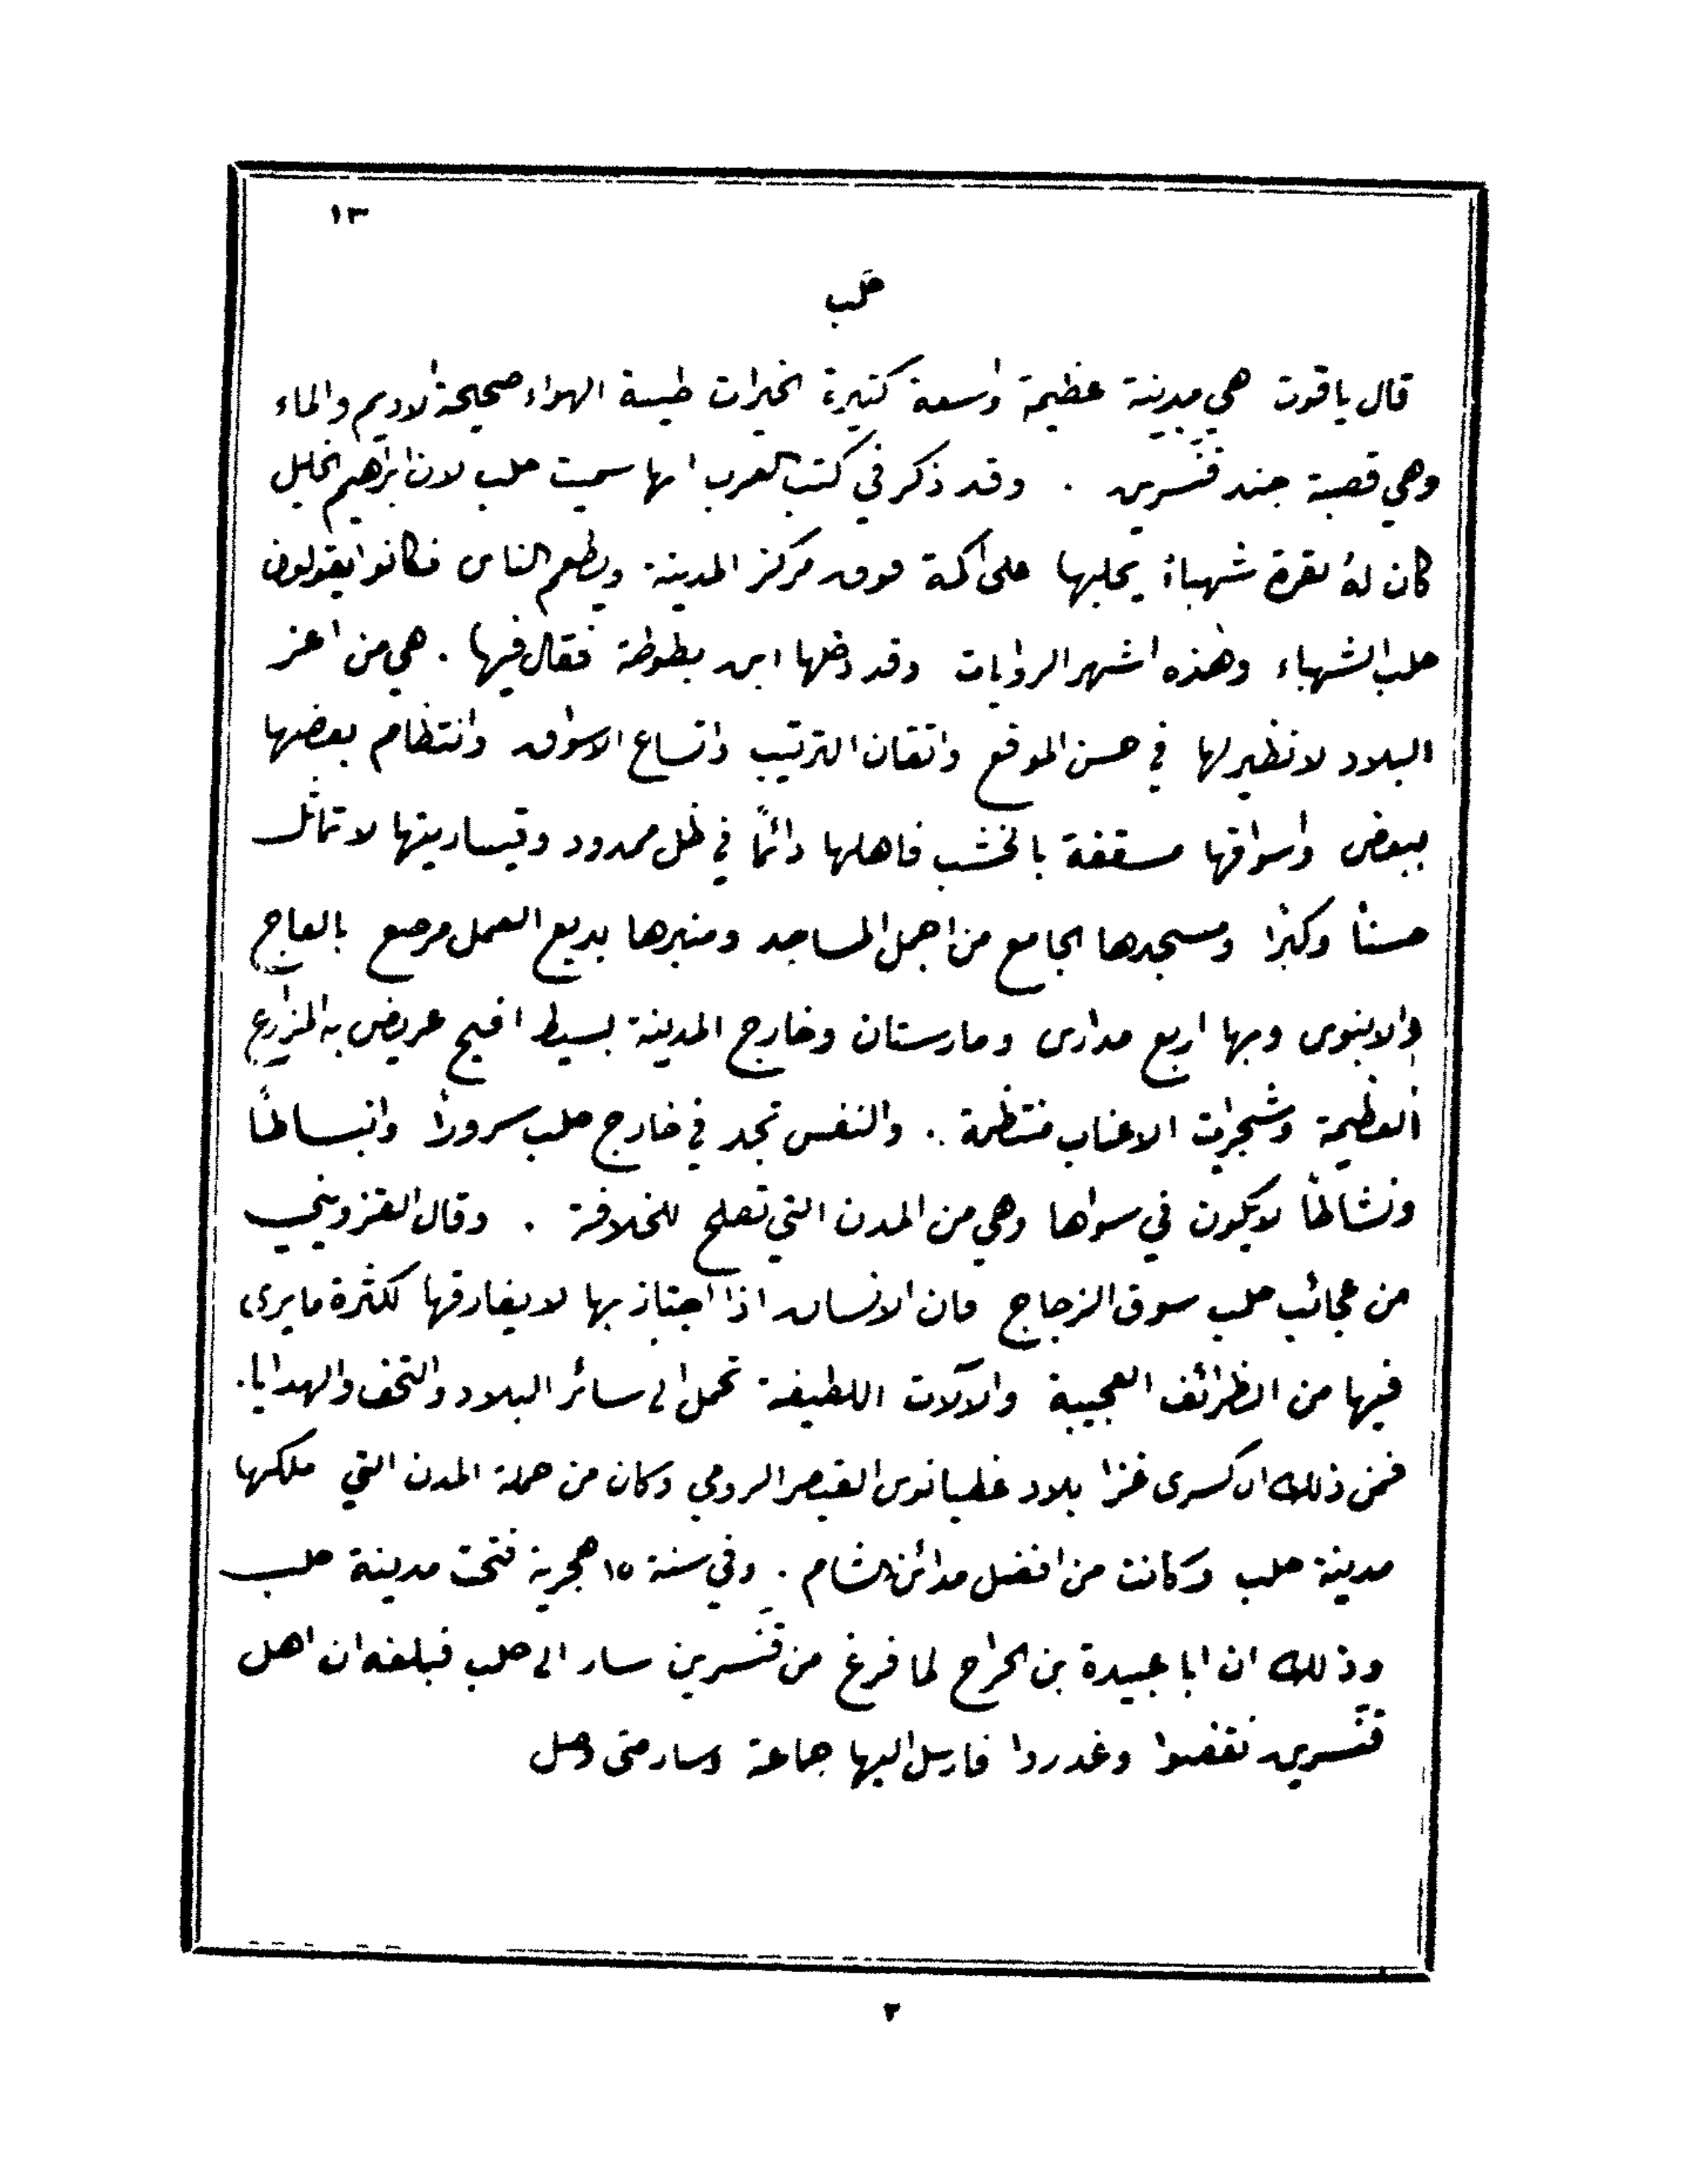 ١٣
حلب
قال ياقوت هي مدينة عظيمة واسعة كثيرة الخيرات طيبة الهواء صحيحة الاديم والماء
وهي قصبة جند قنّسرين . وقد ذكر في كتب العرب انها سميت حلب لان ابراهيم الخليل
كان لهُ بقرة شهباءُ يحلبها على اكمة فوق مركز المدينة ويطعم الناس فكانوا يقولون
حلب الشهباء وهذه اشهر الروايات وقد دخلها ابن بطوطة فقال فيها . هي من اعز
البلاد لا نظير لها في حسن الموقع واتقان الترتيب واتساع الاسواق وانتظام بعضها
ببعض واسواقها مسقفة بالخشب فاهلها دائمًا في ظل ممدود وقيساريتها لا تماثل
حسنًا وكبرًا ومسجدها الجامع من اجمل المساجد ومنبرها بديع العمل مرصع بالعاج
والابنوس وبها اربع مدارس ومارستان وخارج المدينة بسيط افيح عريض به المزارع
العظيمة وشجرات الاعناب منتظمة . والنفس تجد في خارج حلب سرورًا وانبساطًا
ونشاطًا لا يكون في سواها وهي من المدن التي تصلح للخلافة . وقال القزويني
من عجائب حلب سوق الزجاج فان الانسان اذا اجتاز بها لا يفارقها لكثرة ما يرى
فيها من الظرائف العجيبة والآلات اللطيفة تحمل الى سائر البلاد والتحف والهدايا .
فمن ذلك ان كسرى غزا بلاد غطيانوس القيصر الرومي وكان من جملة المدن التي ملكها
مدينة حلب وكانت من افضل مدائن الشام . وفي سنة ١٥ هجرية فتحت مدينة حلب
وذلك ان ابا عبيدة بن الجراح لما فرغ من قنّسرين سار الى حلب فبلغه ان اهل
قنّسرين نقضوا وغدروا فارسل اليها جماعة وسار حتى وصل
٢